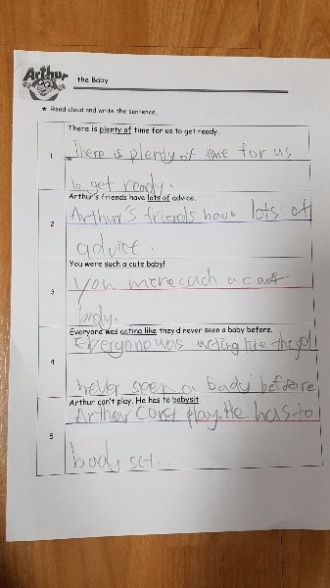 Arthur
the Baby
★ Read aloud and write the sentence.
There is plenty of time for us to get ready.
1
There is plenty of time for us
to get ready.
Arthur's friends have lots of advice.
2
Arthur's friends have lots of
advice.
You were such a cute baby!
3
you were such a cute
body.
Everyone was acting like they'd never seen a baby before.
4
Everyone was acting like they'd
never seen a body before
Arthur can't play. He has to babysit.
5
Arthur can't play. He has to
body sit..